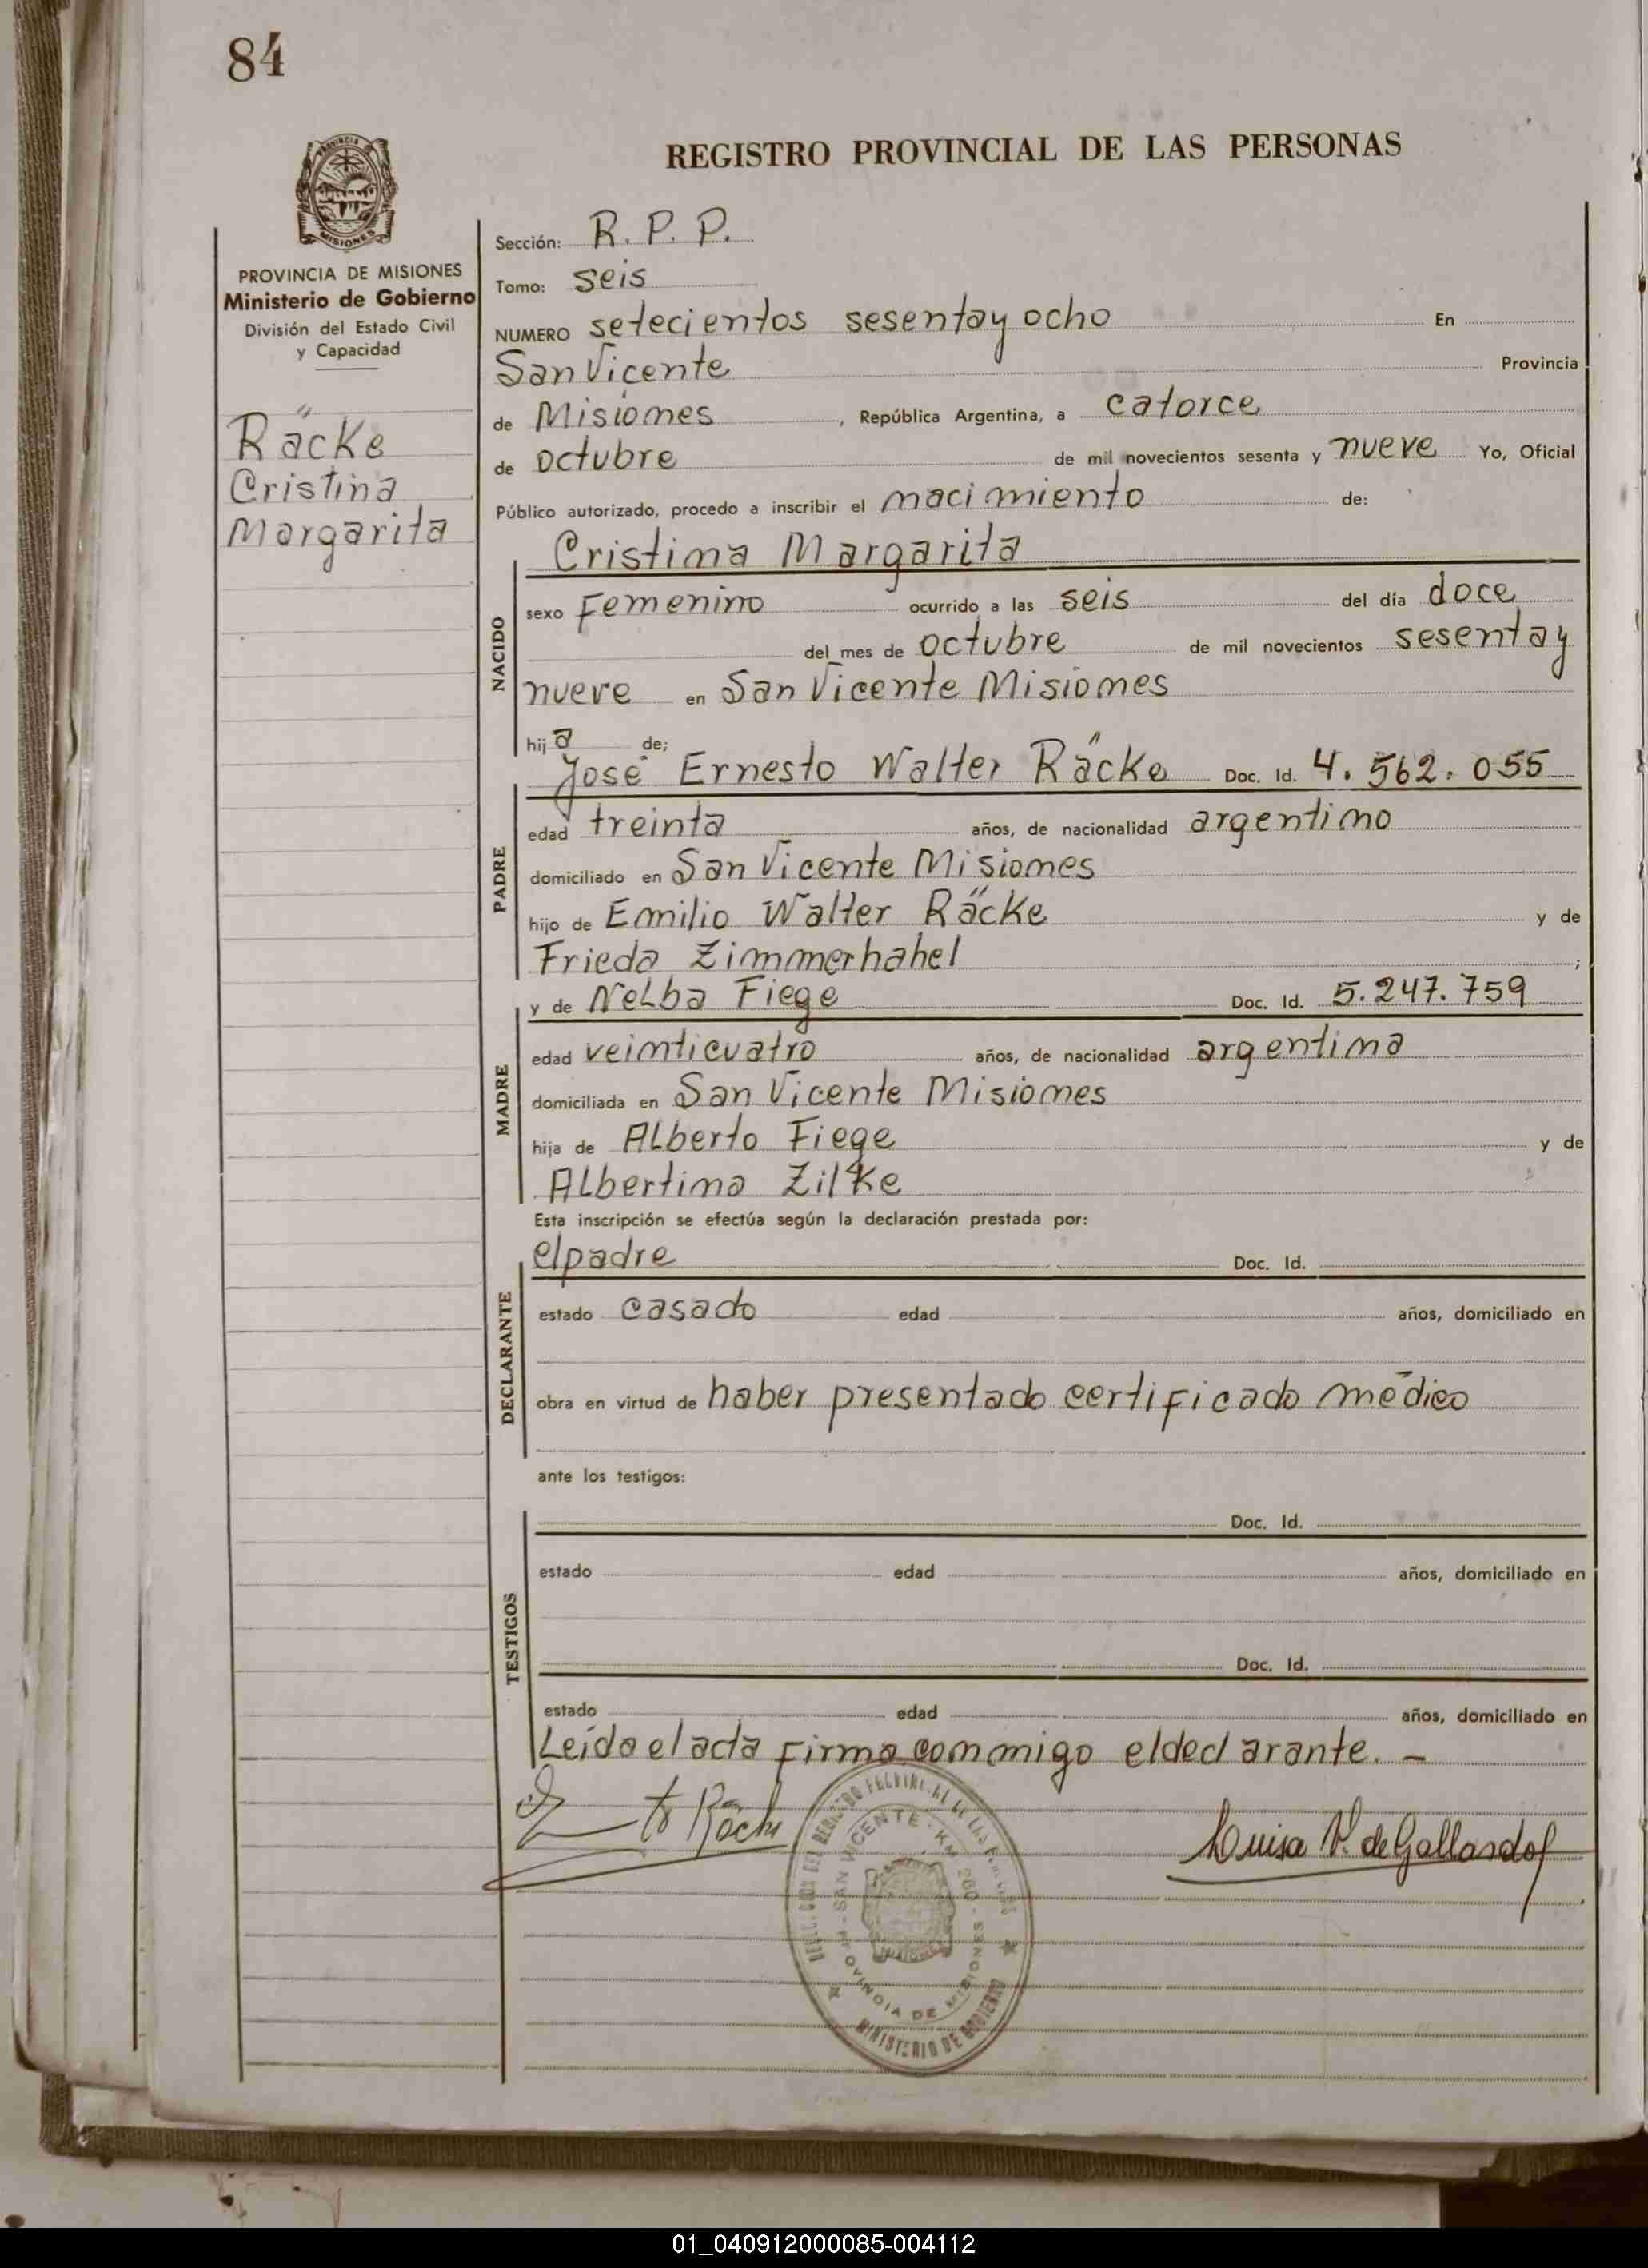 84
REGISTRO PROVINCIAL DE LAS PERSONAS
PROVINCIA DE MISIONES
Ministerio de Gobierno
División del Estado Civil
y Capacidad
Räcke
Cristina
Margarita
Sección: R. P. P.
Tomo: seis
NUMERO setecientos sesenta y ocho En
San Vicente Provincia
de Misiones, República Argentina, a catorce
de octubre de mil novecientos sesenta y nueve Yo, Oficial
Público autorizado, procedo a inscribir el nacimiento de:
Cristina Margarita
NACIDO
sexo Femenino ocurrido a las seis del día doce
del mes de octubre de mil novecientos sesenta y
nueve en San Vicente Misiones
hija de;
José Ernesto Walter Räcke Doc. Id. 4.562.055
PADRE
edad treinta años, de nacionalidad argentino
domiciliado en San Vicente Misiones
hijo de Emilio Walter Räcke y de
Frieda Zimmerhahel;
y de Nelba Fiege Doc. Id. 5.247.759
MADRE
edad veinticuatro años, de nacionalidad argentina
domiciliada en San Vicente Misiones
hija de Alberto Fiege y de
Albertina Zilke
Esta inscripción se efectúa según la declaración prestada por:
el padre Doc. Id.
DECLARANTE
estado casado edad años, domiciliado en
obra en virtud de haber presentado certificado médico
ante los testigos:
Doc. Id.
TESTIGOS
estado edad años, domiciliado en
Doc. Id.
estado edad años, domiciliado en
Leída el acta firma conmigo el declarante. -
Luisa V. de Gallardo
SAN VICENTE - KM 260 -
PROVINCIA DE MISIONES
MINISTERIO DE GOBIERNO
01_040912000085-004112